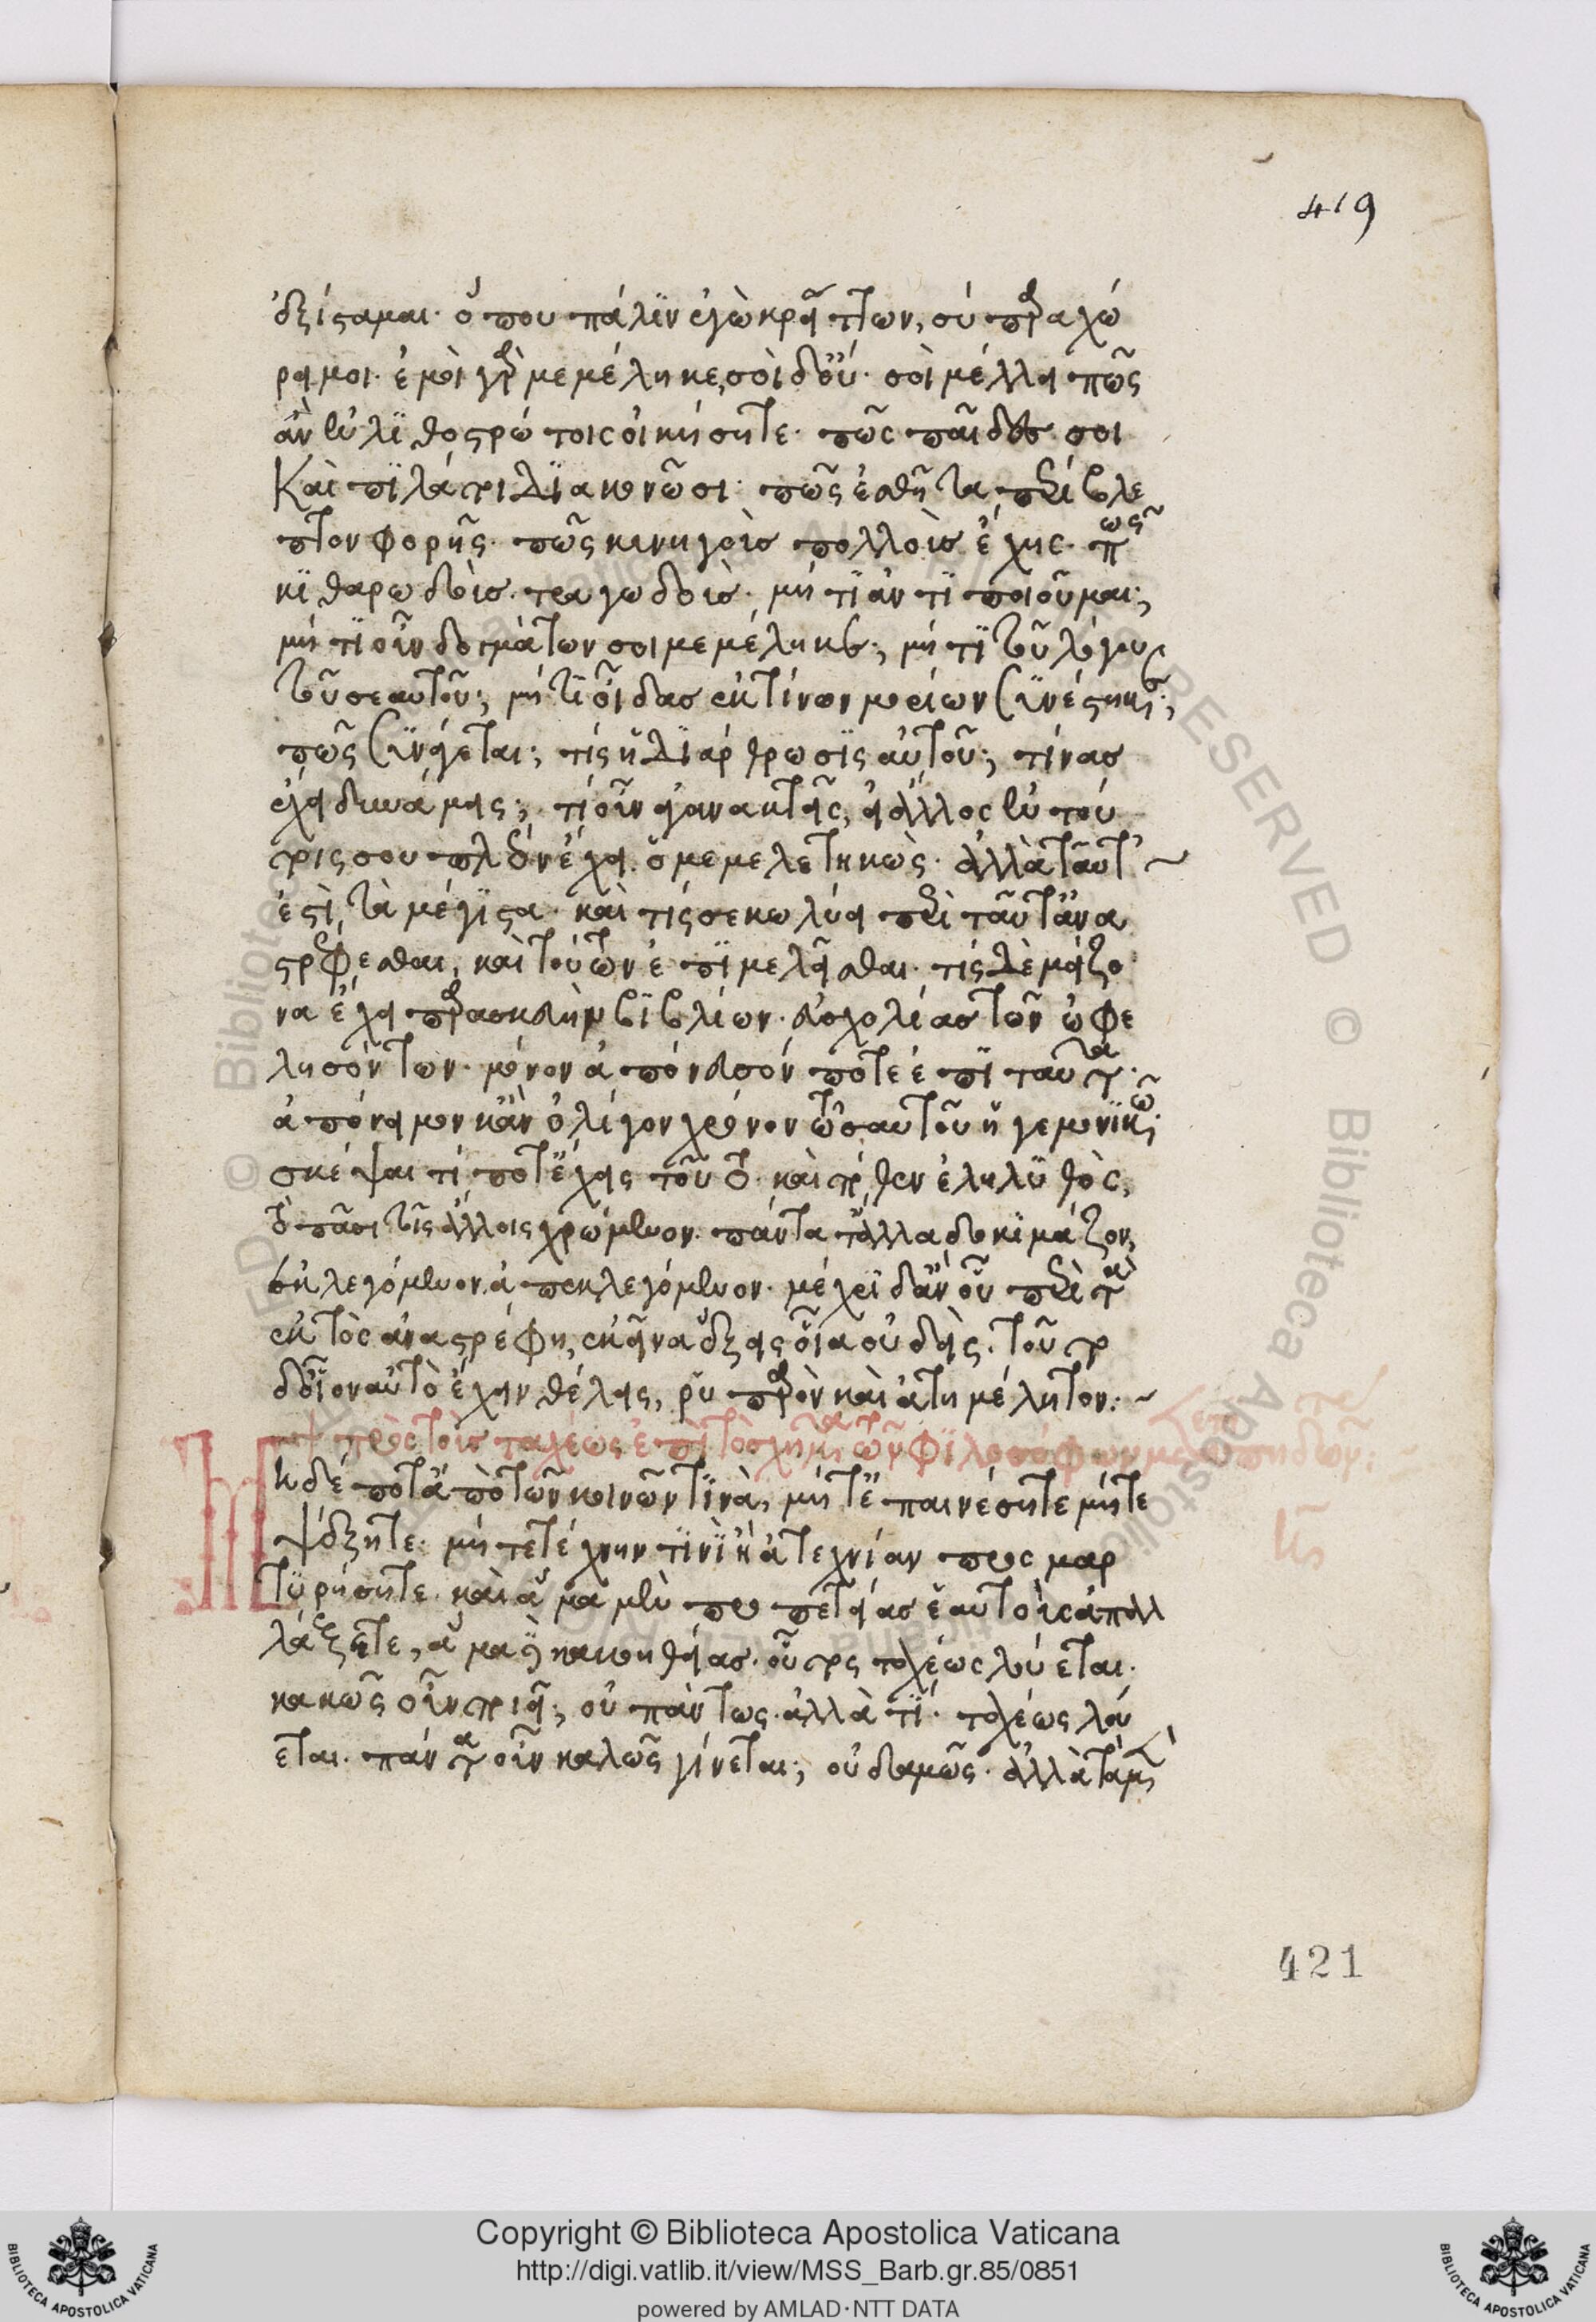 ἐξίσταμαι· ὅπου πάλϊν ἐγὼ κρείττων, σύ παραχώ
ρει μοι· ἐμοὶ γὰρ μεμέληκε, σοὶ δ' οὔ· σοὶ μέλλει πῶς
ἂν ἐν λϊθοστρώτοις οἰκήσητε· πῶς παῖδες σοι
Καὶ πϊλάτοι δϊακονῶσι· πῶς ἐσθῆτα περίβλε
πτον φορῇς· πῶς κυνηγοὺς πολλοὺς ἔχῃς· πῶς
κϊθαρωδοὺς· τραγωδοὺς· μή τϊ ἀντϊποιοῦμαι;
μή τϊ οὖν δογμάτων σοι μεμέληκεν; μή τϊ τοῦ λόγου
τοῦ σεαυτοῦ; μή τϊ οἶδας ἐκ τίνων μορίων συνέστηκεν;
πῶς συνάγεται; τίς ἡ δϊάρθρωσϊς αὐτοῦ; τίνας
ἔχει δυνάμεις; τί οὖν ἀγανακτεῖς, εἰ ἄλλος ἐν τού
τοις σου πλέον ἔχει ὁ μεμελετηκὼς· ἀλλὰ ταῦτ'
ἐστὶ τὰ μέγϊστα· καὶ τίς σε κωλύει περὶ ταῦτ' ἀνα
στρέφεσθαι, καὶ τούτων ἐπϊμελεῖσθαι· τίς δὲ μείζο
να ἔχει παρασκευὴν βϊβλίων· εὐσχολίας τῶν ὠφε
λησόντων· μόνον ἀπόνευσόν ποτε ἐπϊ ταῦτα·
ἀπόνειμον κἂν ὀλίγον χρόνον τῷ σαυτοῦ ἡγεμονϊκῷ·
σκέψαι τί ποτ' ἔχεις τοῦτο· καὶ πόθεν ἐληλϋθὸς,
τὸ πᾶσι τοῖς ἄλλοις χρώμενον· πάντα τἄλλα δοκϊμάζον,
ἐκλεγόμενον, ἀπεκλεγόμενον· μέχρϊ δ' ἂν οὖ περὶ τὰ
ἐκτὸς ἀναστρέφῃ, ἐκεῖνα ἕξεις οἷα οὐδεὶς· τοῦτο
δ' οἷον αὐτὸ ἔχειν θέλεις, ῥυπαρὸν καὶ ἀτημέλητον:~
πρὸς τοὺς ταχέως ἐπὶ τὸ σχῆμα τῶν φϊλοσόφων μεταπηδῶντας:
Μηδέποτ' ἀπὸ τῶν κοινῶν τϊνὰ, μήτ' ἐπαινέσητε μήτε
ψέξητε· μήτε τέχνην τϊνϊ ἢ ἀτεχνίαν προσμαρ
τϋρήσητε· καὶ ἅμα μὲν προπετείας ἑαυτοὺς ἀπαλ
λάξετε, ἅμα δὲ κακοηθείας· οὗτος ταχέως λούεται·
κακῶς οὖν ποιεῖ; οὐ πάντως· ἀλλὰ τϊ· ταχέως λού
εται· πάντα οὖν καλῶς γίνεται; οὐδαμῶς· ἀλλὰ τὰ μὲν
419
421
Copyright © Biblioteca Apostolica Vaticana
http://digi.vatlib.it/view/MSS_Barb.gr.85/0851
powered by AMLAD·NTT DATA